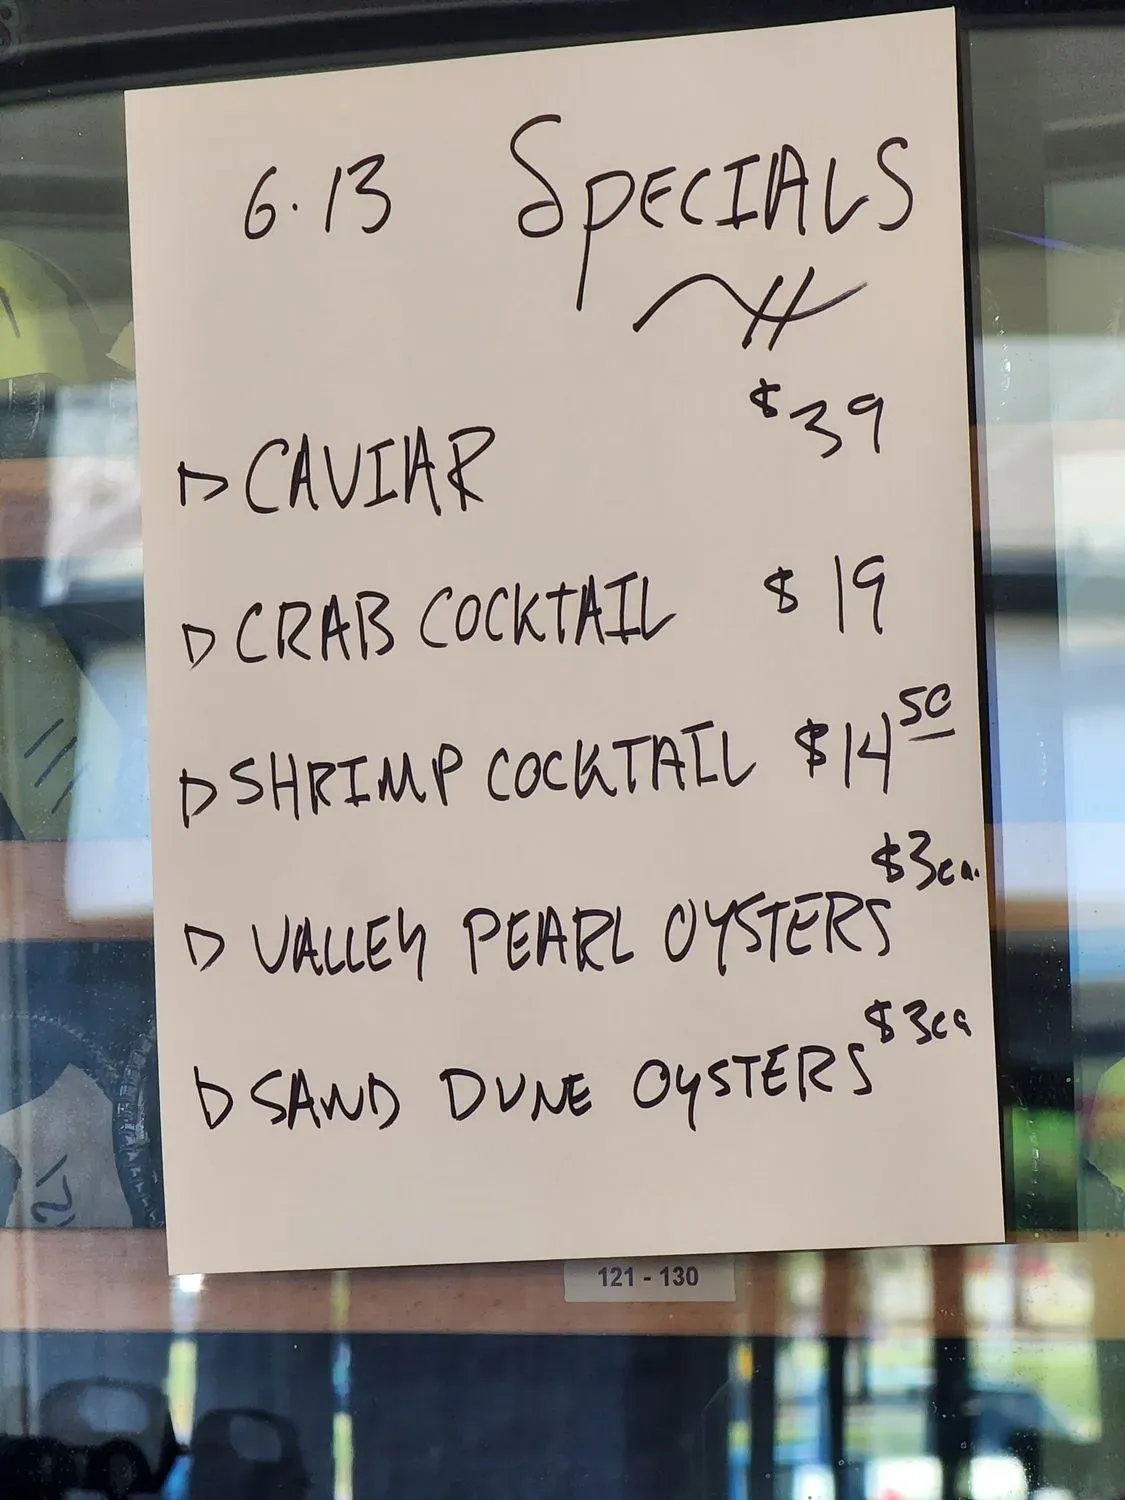 6.13 SPECIALS
▷ CAVIAR $39
▷ CRAB COCKTAIL $19
▷ SHRIMP COCKTAIL $14 50
▷ VALLEY PEARL OYSTERS $3ea.
▷ SAND DUNE OYSTERS $3ea
121 - 130